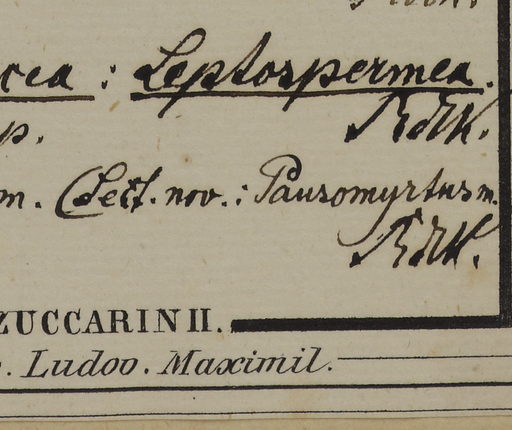 cea : Leptospermea.
p. RdlK.
m. (Sect. nov. : Pausomyrtus m.
RdlK.
ZUCCARINII.
. Ludov. Maximil.